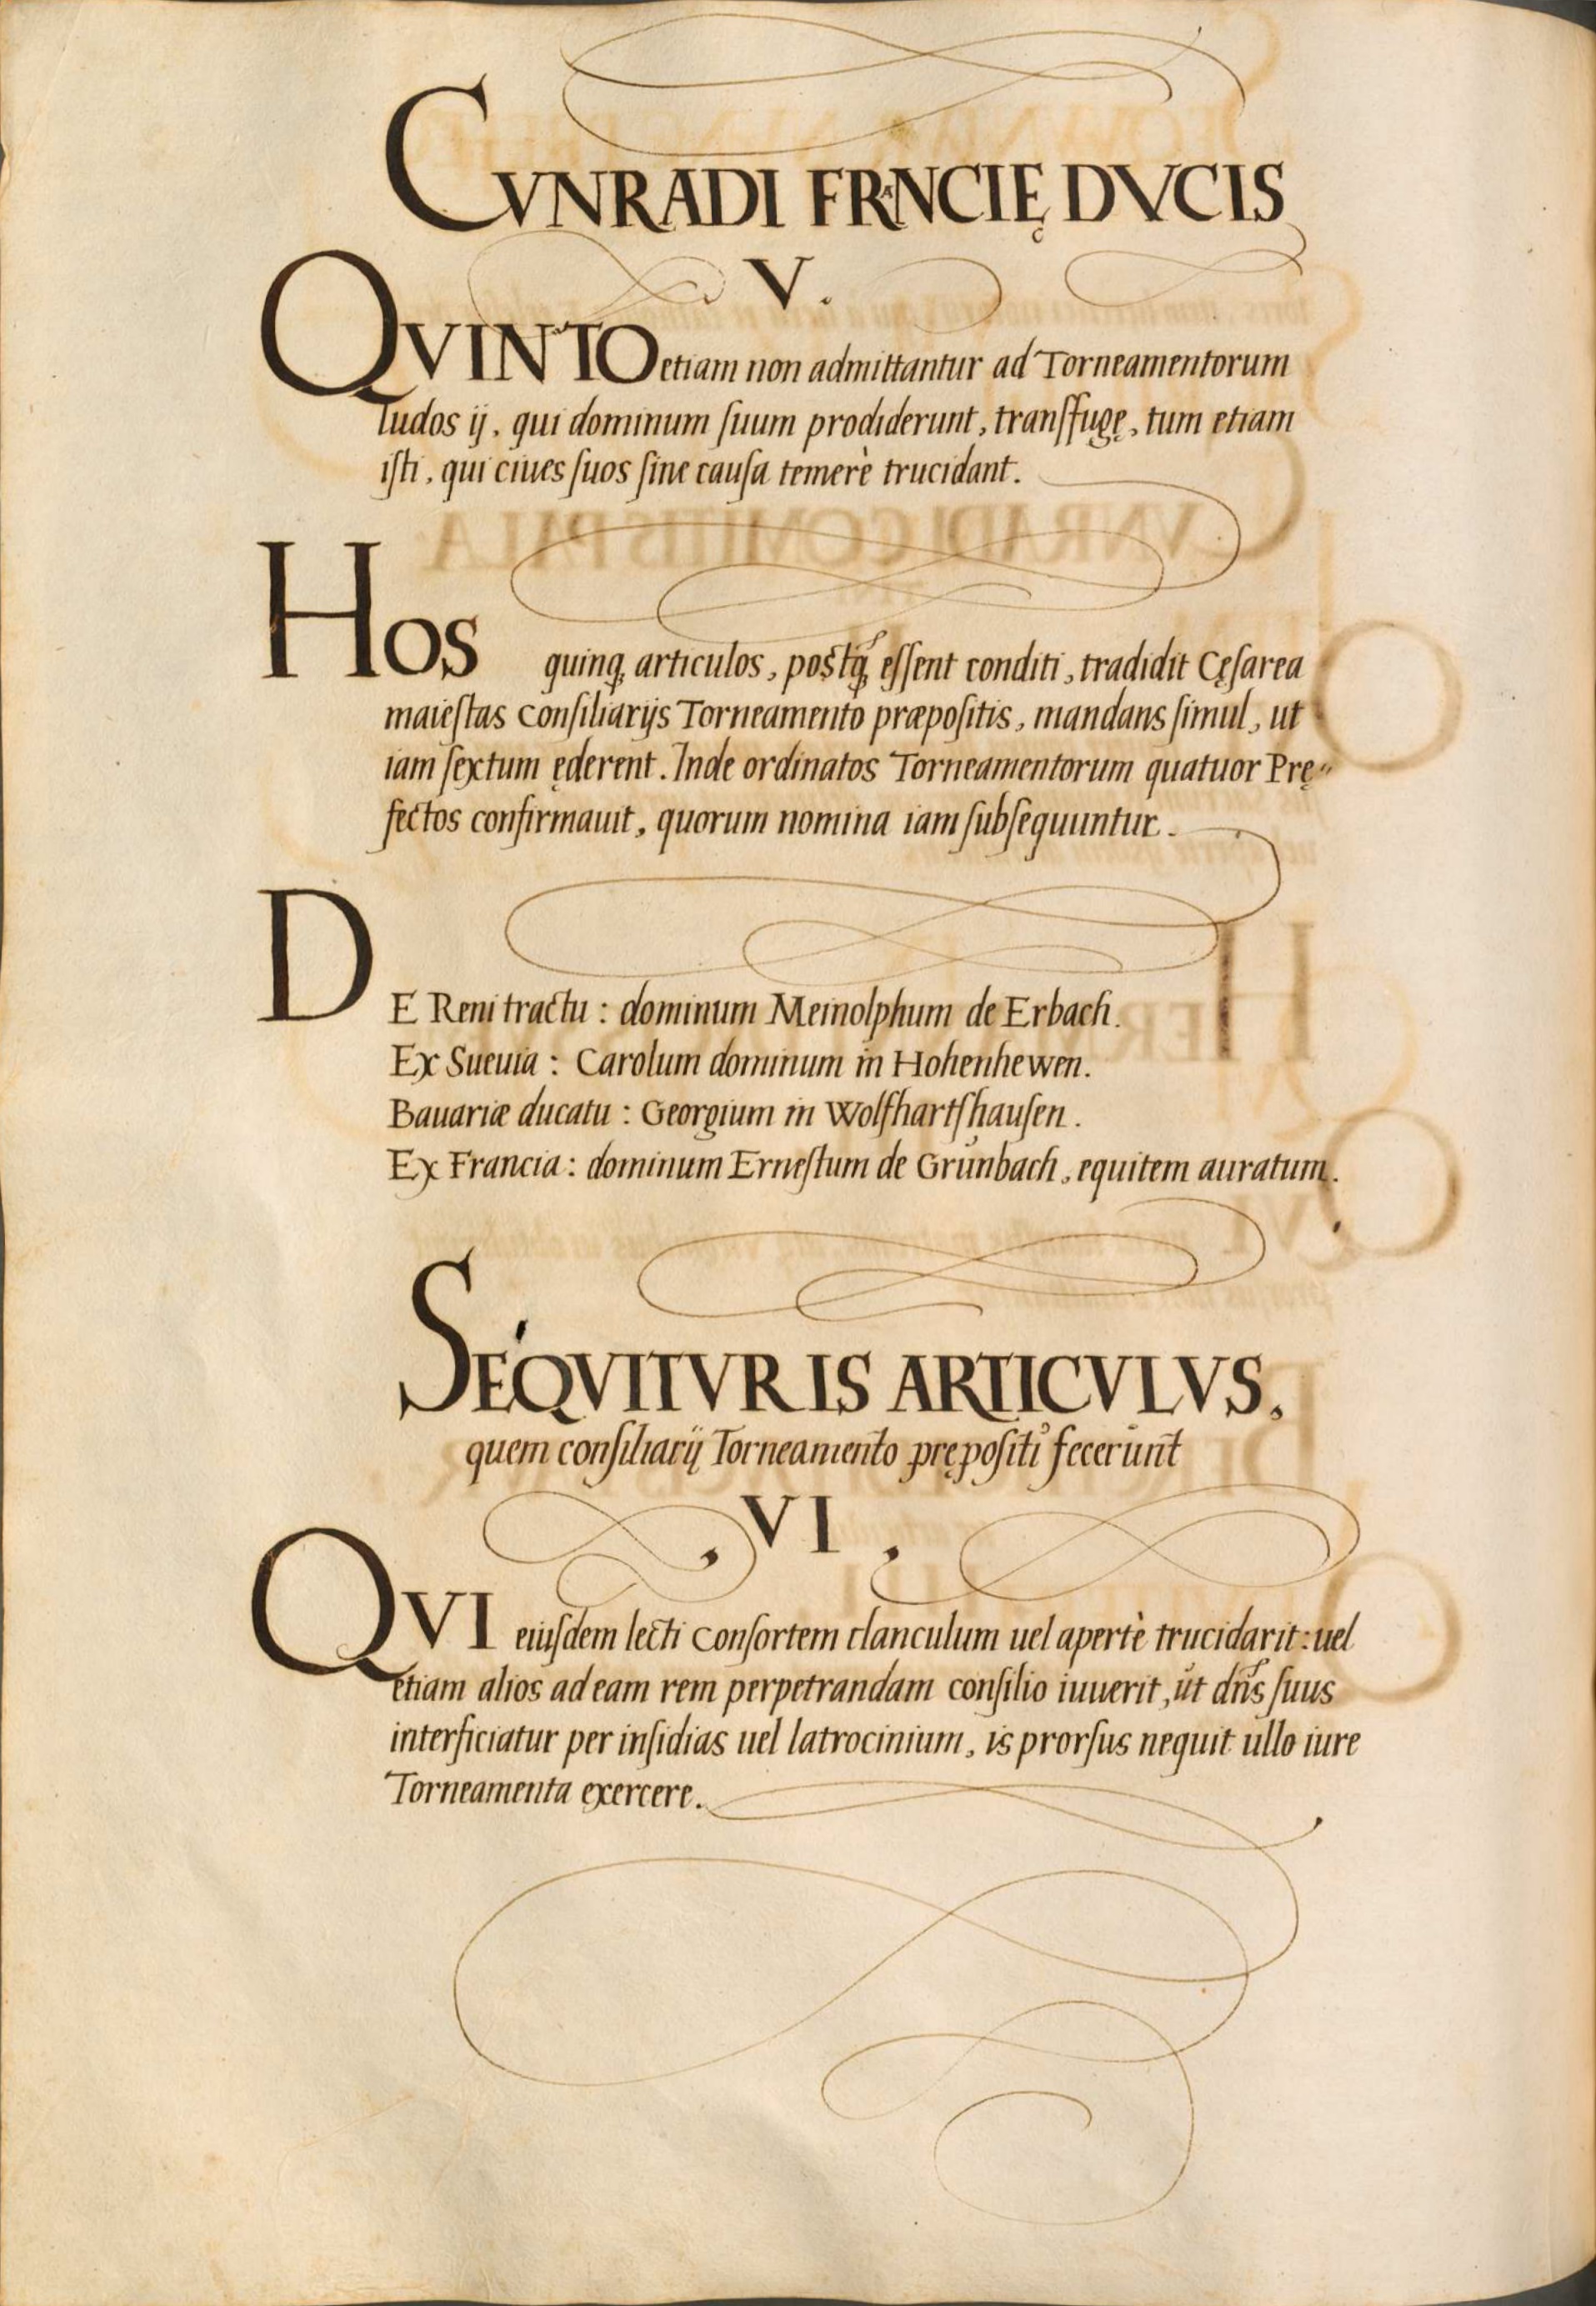 CVNRADI FRANCIĘ DVCIS
V.
QVINTO etiam non admittantur ad Torneamentorum
ludos ij, qui dominum ſuum prodiderunt, tranſfugę, tum etiam
iſti, qui ciues ſuos ſine cauſa temerè trucidant.
HOS quinq; articulos, postq̃; eſſent conditi, tradidit Cęſarea
maieſtas conſiliarijs Torneamento præpoſitis, mandans ſimul, ut
iam ſextum ęderent. Inde ordinatos Torneamentorum quatuor Prę〃
fectos confirmauit, quorum nomina iam ſubſequuntur.
DE Reni tractu: dominum Meinolphum de Erbach.
Ex Sueuia: Carolum dominum in Hohenhewen.
Bauariæ ducatu: Georgium in Wolfhartſhauſen.
Ex Francia: dominum Erneſtum de Grŭnbach, equitem auratum.
SÉQVITVR IS ARTICVLVS,
quem conſiliarij Torneamento prępoſiti fecerunt
, VI ,
QVI eiuſdem lecti conſortem clanculum uel apertè trucidarit: uel
etiam alios ad eam rem perpetrandam conſilio iuuerit, ut dñs ſuus
interficiatur per inſidias uel latrocinium, is prorſus nequit ullo iure
Torneamenta exercere.